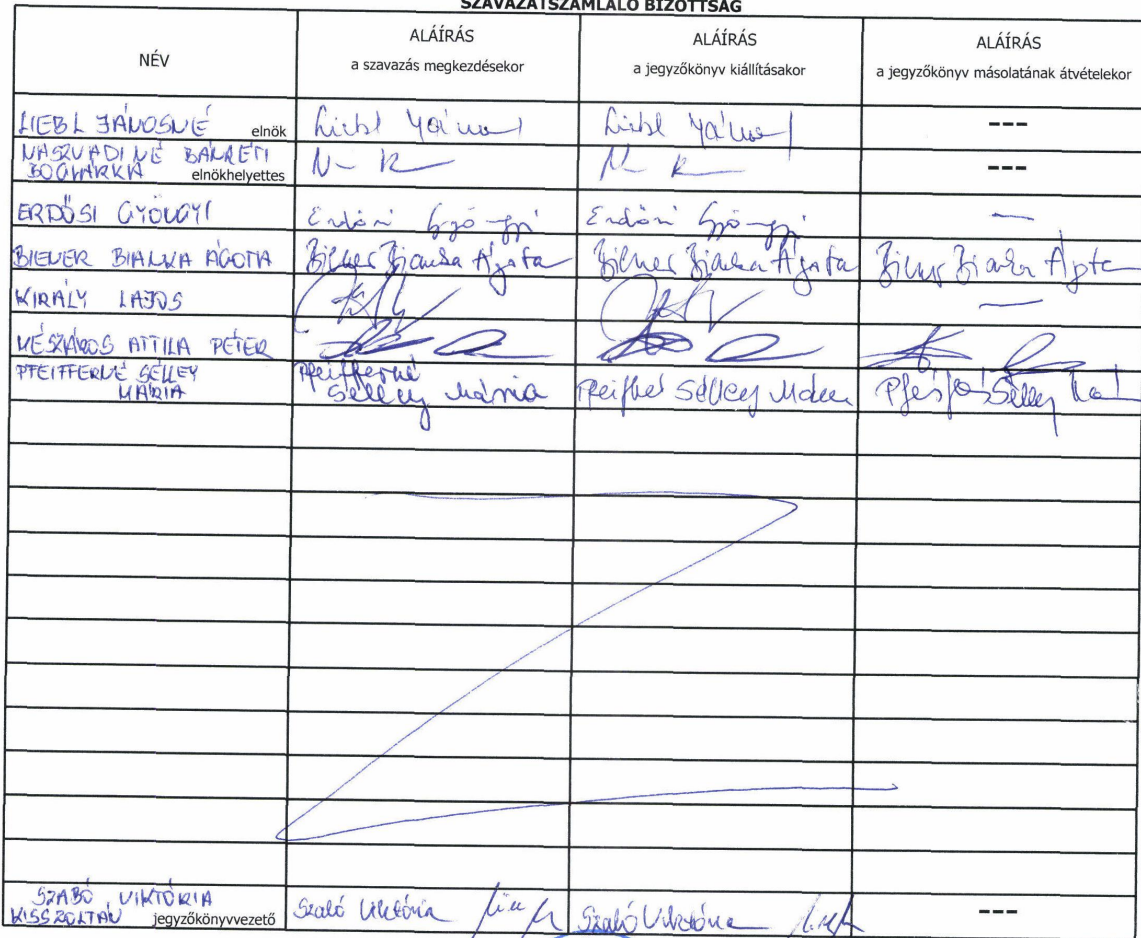 SZAVAZATSZÁMLÁLÓ BIZOTTSÁG
NÉV
ALÁÍRÁS
a szavazás megkezdésekor
ALÁÍRÁS
a jegyzőkönyv kiállításakor
ALÁÍRÁS
a jegyzőkönyv másolatának átvételekor
LIEBL JÁNOSNÉ elnök ---
NASZVADINÉ BANRÉTI
BOGLÁRKA elnökhelyettes ---
ERDŐSI GYÖNGYI Erdősi Gyöngyi Erdősi Gyöngyi —
BIENER BIANKA ÁGOTA Biener Bianka Ágota Biener Bianka Ágota Biener Bianka Ágota
KIRÁLY LAJOS —
MÉSZÁROS ATTILA PÉTER
PFEIFFERNÉ SÉLLEY
MÁRIA
Pfeifferné
Sélley Mária
Sélley
Sélley
SZABÓ VIKTÓRIA
KISS ZOLTÁN jegyzőkönyvvezető Szabó Viktória Szabó Viktória ---